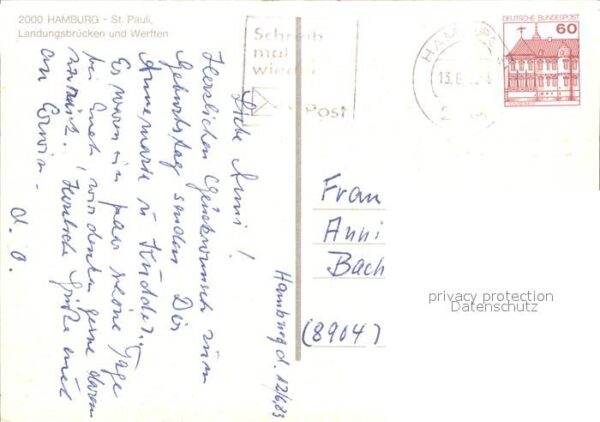 2000 HAMBURG - St. Pauli,
Landungsbrücken und Werften
Schreib
mal
wieder
Post
HAMBURG
13.6.
DEUTSCHE BUNDESPOST
60
Hamburg d. 12/6.83
Liebe Anni!
Herzlichen Glückwunsch zum
Geburtstag senden Dir
Annemarie u.
Es waren ein paar schöne Tage
bei Euch, wir denken gerne daran
zurück. Herzliche Grüße auch
an Erwin.
d. O.
Frau
Anni
Bach
(8904)
privacy protection
Datenschutz